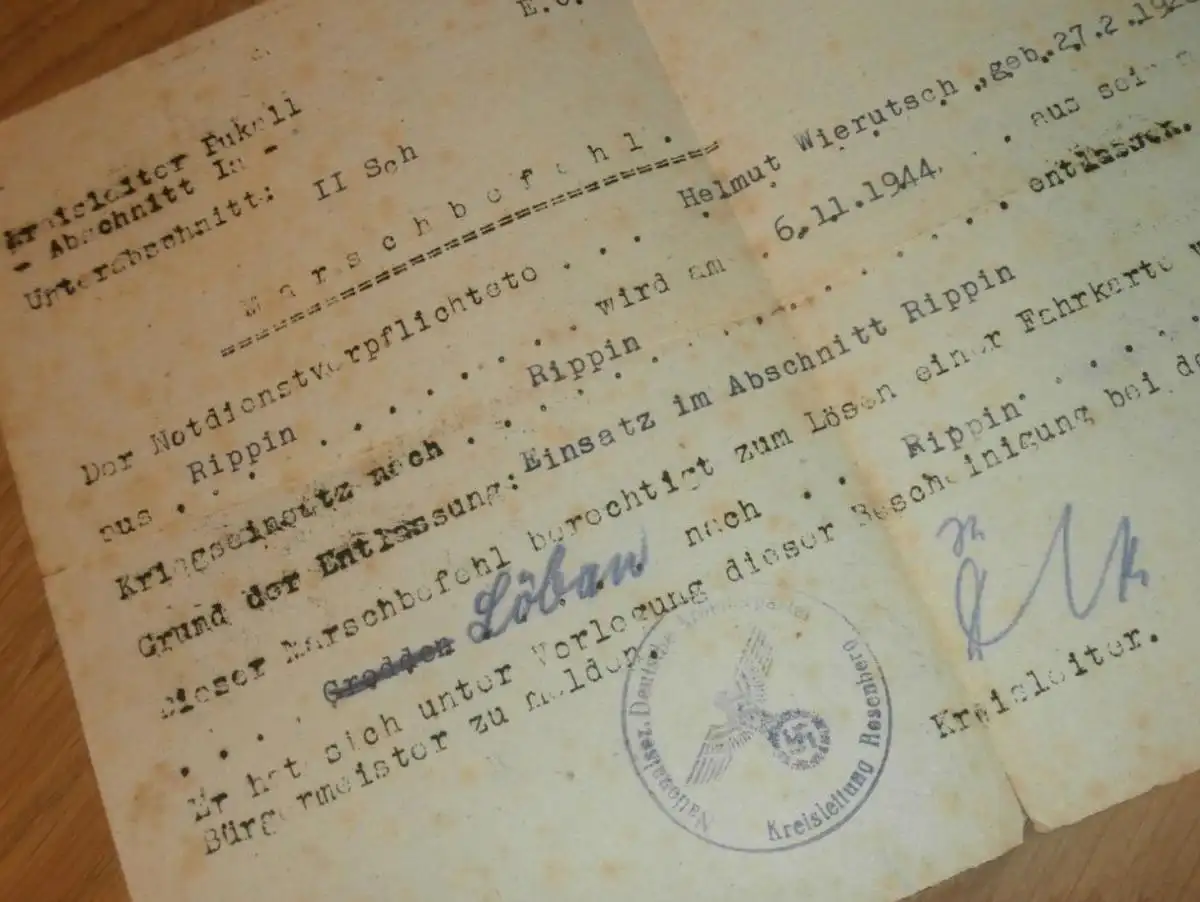 E.O.
Kreisleiter Pukall
- Abschnitt Ia -
Unterabschnitt: II Sch
Marschbefehl.
Der Notdienstverpflichtete . . . Helmut Wierutsch „geb.27.2.192
aus . Rippin . . . . . . . . wird am . 6.11.1944. . . aus seinem
Kriegseinsatz nach . . Rippin . . . . . . . . . . . entlassen.
Grund der Entlassung: Einsatz im Abschnitt Rippin
Dieser Marschbefehl berechtigt zum Lösen einer Fahrkarte v
. . . Grodden Löbau nach . . Rippin . . . .
Er hat sich unter Vorlegung dieser Bescheinigung bei de
Bürgermeister zu melden.
Kreisleiter.
Nationalsoz. Deutsche Arbeiterpartei
Kreisleitung Rosenberg